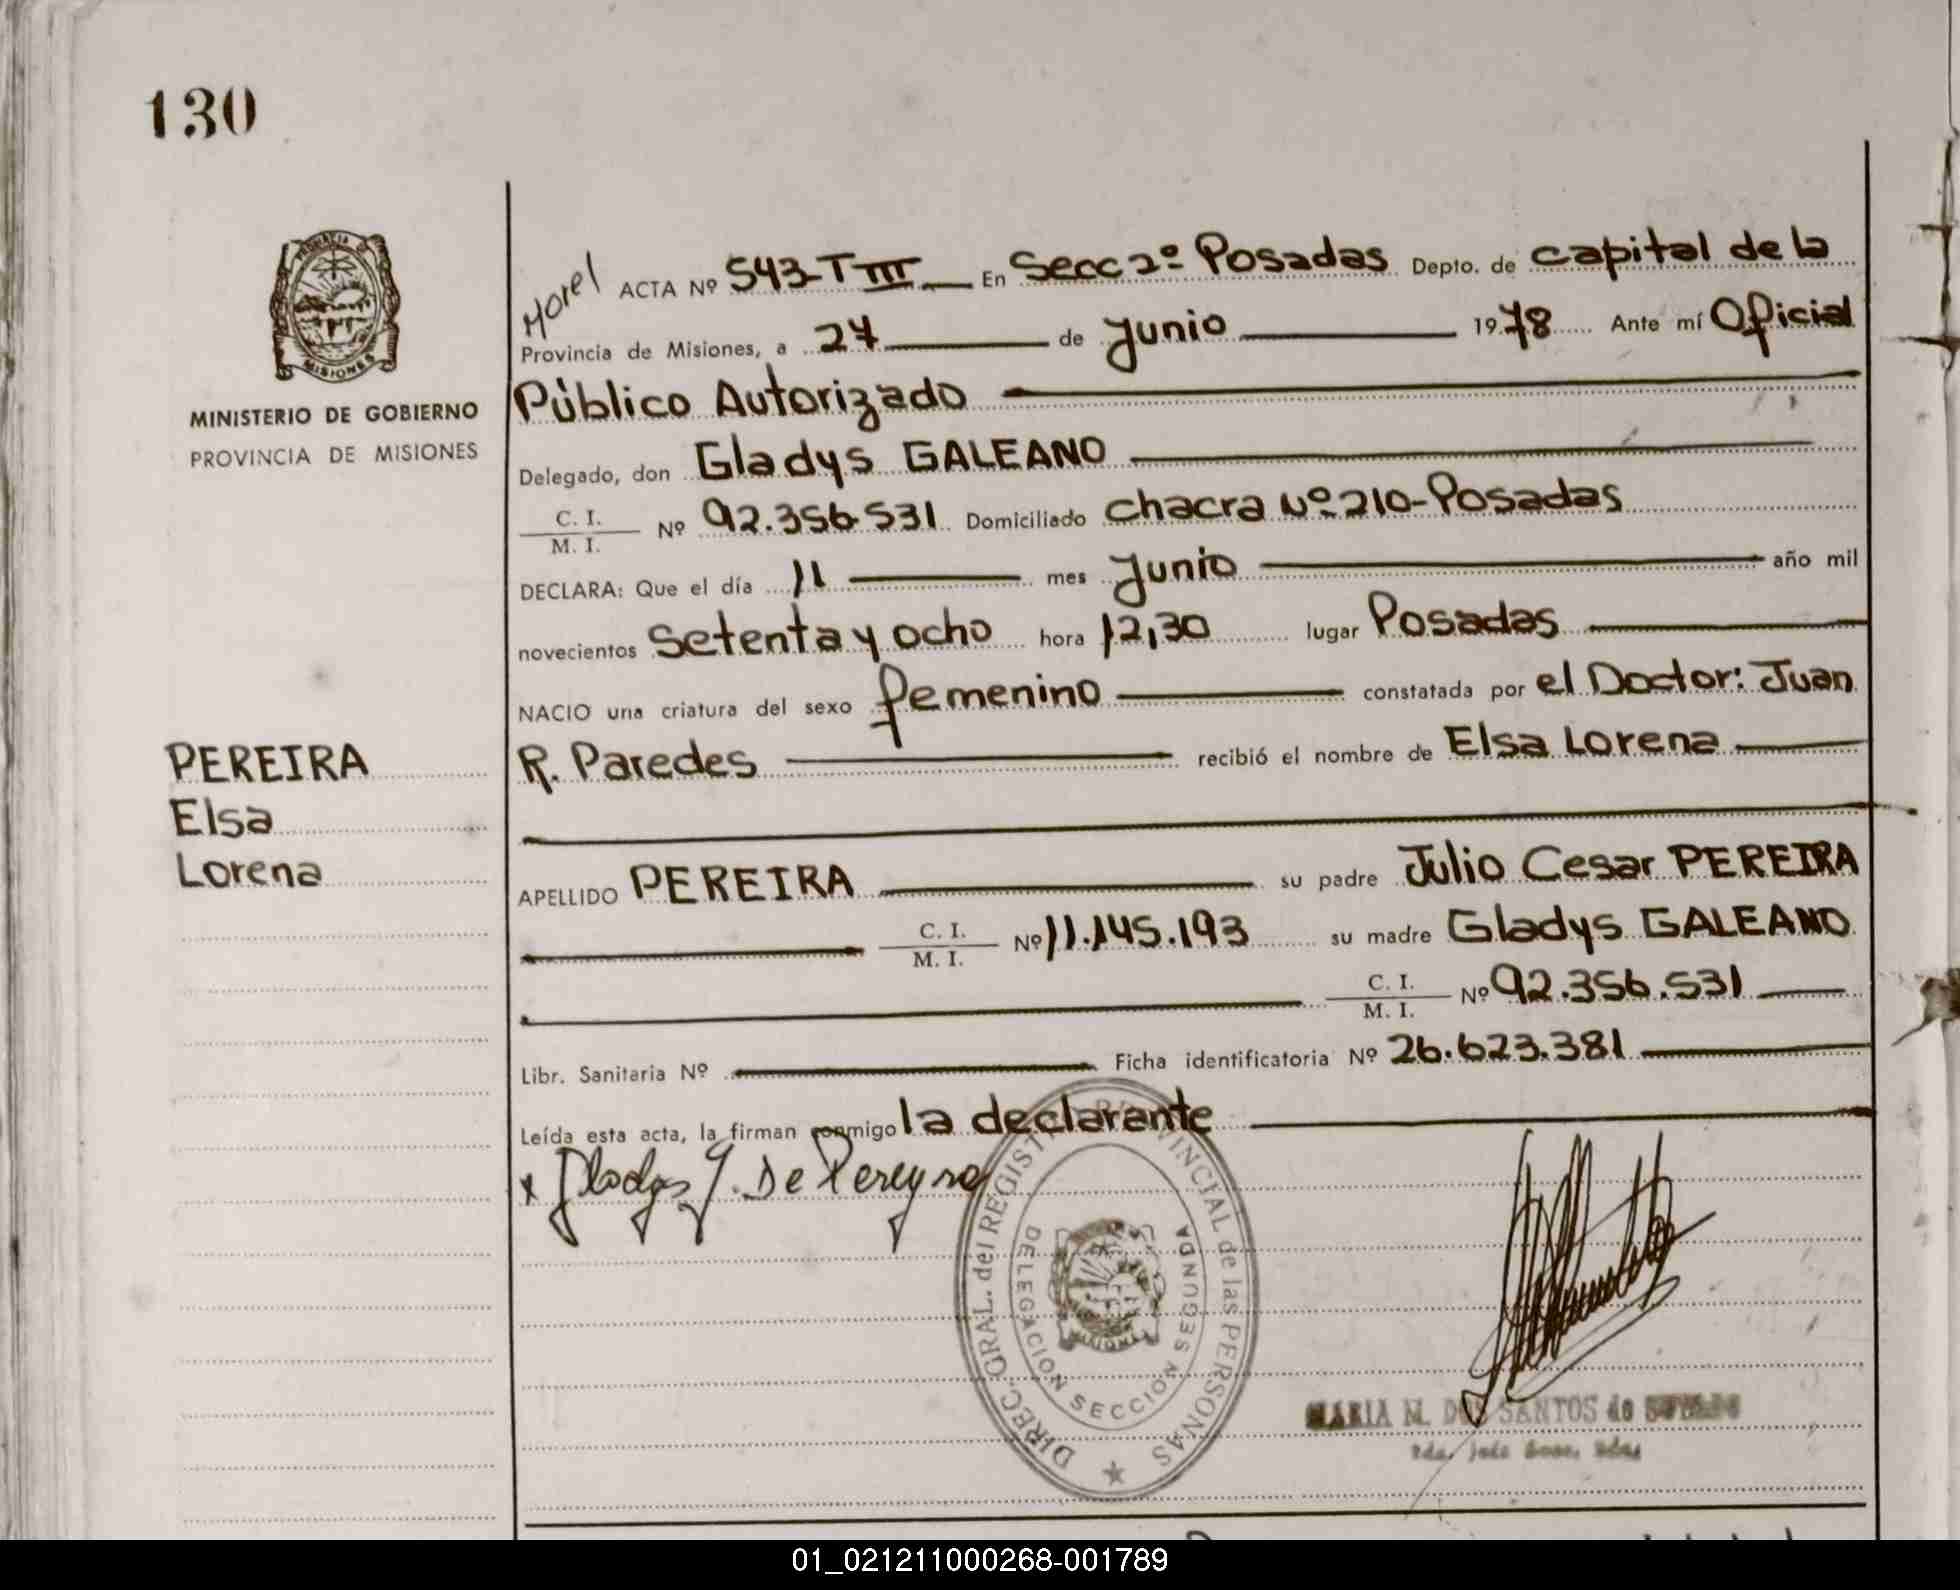 130
PROVINCIA DE
MISIONES
MINISTERIO DE GOBIERNO
PROVINCIA DE MISIONES
Morel
ACTA Nº 543-T III En Secc 2º Posadas Depto. de capital de la
Provincia de Misiones, a 27 de Junio 1978 Ante mí Oficial
Público Autorizado
Delegado, don Gladys GALEANO
C. I.
M. I. Nº 92.356.531 Domiciliado chacra Nº 210-Posadas
DECLARA: Que el día 11 mes Junio año mil
novecientos setenta y ocho hora 12,30 lugar Posadas
NACIO una criatura del sexo femenino constatada por el Doctor: Juan
R. Paredes recibió el nombre de Elsa Lorena
PEREIRA
Elsa
Lorena
APELLIDO PEREIRA su padre Julio Cesar PEREIRA
C. I.
M. I. Nº 11.145.193 su madre Gladys GALEANO
C. I.
M. I. Nº 92.356.531
Libr. Sanitaria Nº Ficha identificatoria Nº 26.623.381
Leída esta acta, la firman conmigo la declarante
x Gladys G. De Pereyra
DIREC. GRAL. del REGISTRO PROVINCIAL de las PERSONAS
DELEGACION SECCION SEGUNDA
MARIA M. DOS SANTOS de
01_021211000268-001789